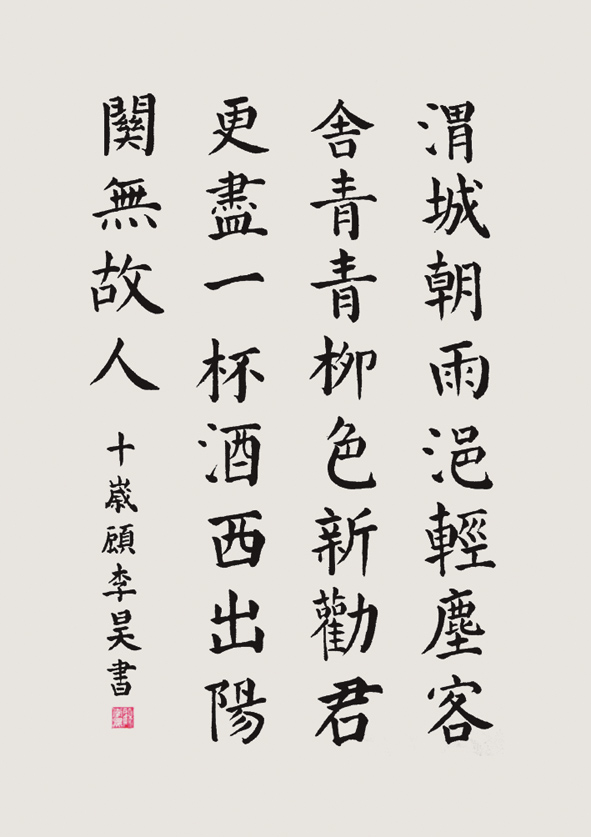 渭城朝雨浥輕塵客
舍青青柳色新勸君
更盡一杯酒西出陽
關無故人
十歲顧李昊書